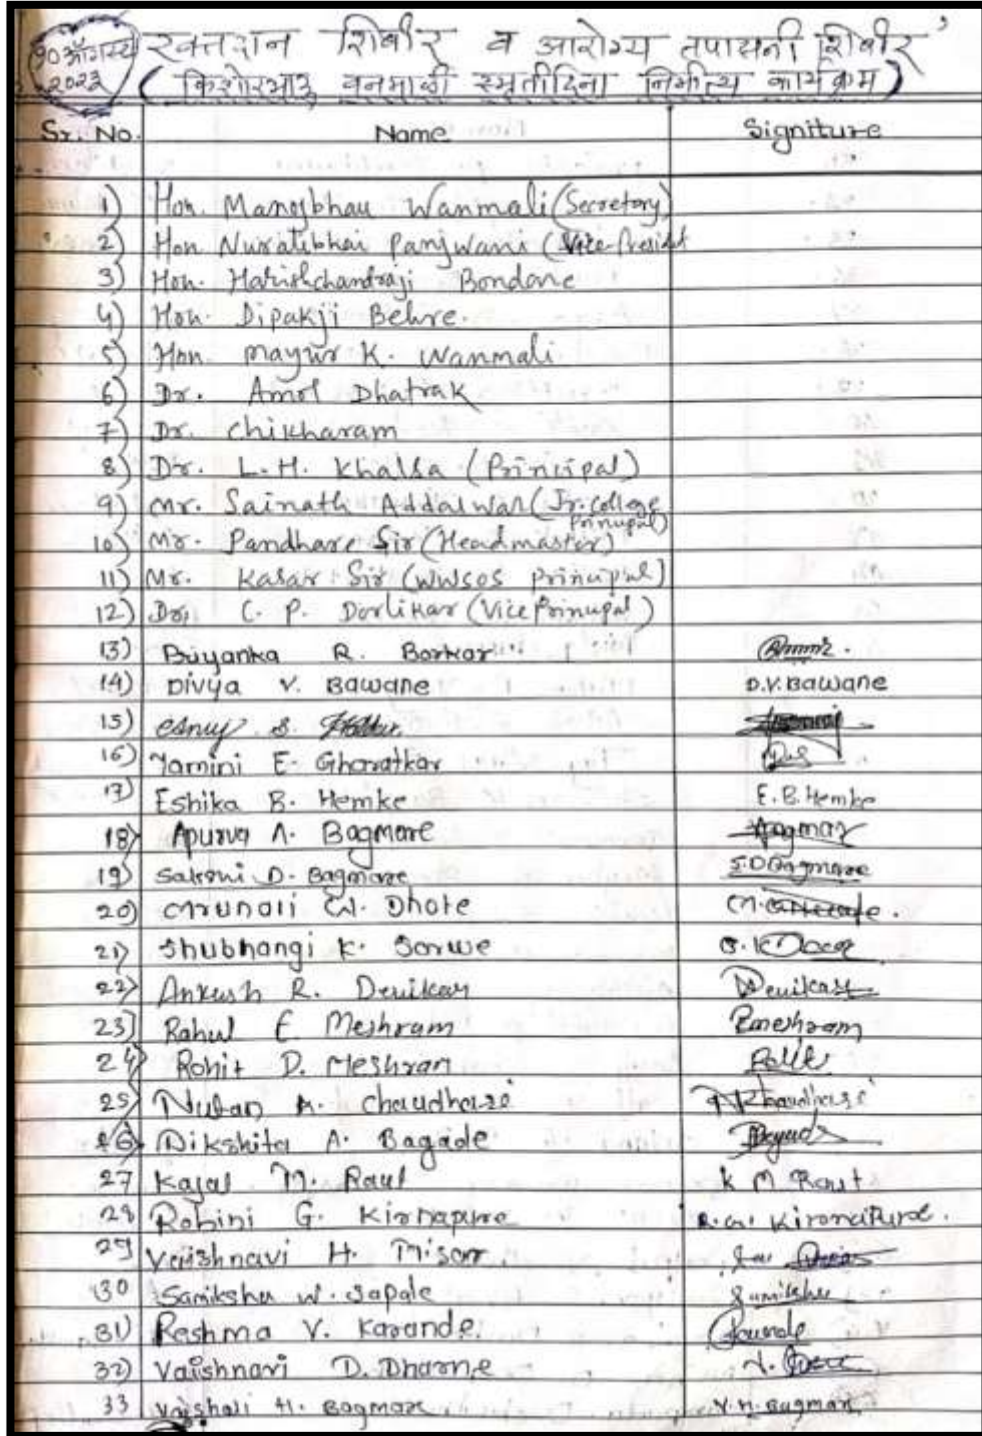 १० ऑगस्ट २०२३
रक्तदान शिबीर व आरोग्य तपासनी शिबीर
( किशोरभाऊ वनमाळी स्मृतीदिना निमीत्य कार्यक्रम )
Sr. No. Name Signiture
1) Hon. Manojbhau Wanmali (Secretory)
2) Hon Nuratibhai Panjwani (Vice-Presidt
3) Hon. Harishchandraji Bondane
4) Hon. Dipakji Behre.
5) Hon. Mayur K. Wanmali
6) Dr. Amol Dhatrak
7) Dr. Chikharam
8) Dr. L.H. Khalsa (Principal)
9) Mr. Sainath Addalwar (Jr. College Principal)
10) Mr. Pandhare Sir (Headmaster)
11) Mr. Kasar Sir (WWSOS Principal)
12) Dr. C. P. Dorlikar (Vice Principal)
13) Priyanka R. Borkar
14) Divya V. Bawane D.V. Bawane
15) S.
16) Yamini E. Gharatkar
17) Eshika B. Hemke E. B. Hemke
18) Apurva A. Bagmare
19) Sakshi D. Bagmare S.D Bagmare
20) Mrunali W. Dhote
21) Shubhangi K. Sorwe
22) Ankush R. Devikar Devikar
23) Rahul E Meshram Rmeshram
24) Rohit D. Meshran
25) Nutan A. Chaudhari
26) Dikshita A. Bagade
27 Kajal M. Raut K M Raut
28 Rohini G. Kirnapure R. G. Kironapure.
29 Vaishnavi H. Misar
30 Samiksha W. Sapale Samiksha
31) Reshma V. Karande
32) Vaishnavi D. Dharne
33 Vaishali H. Bagmare V. H. Bagmare